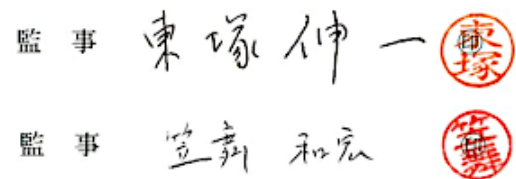 監 事 東 塚 伸 一 ㊞ 東塚
監 事 笠舞 和宏 ㊞ 笠舞